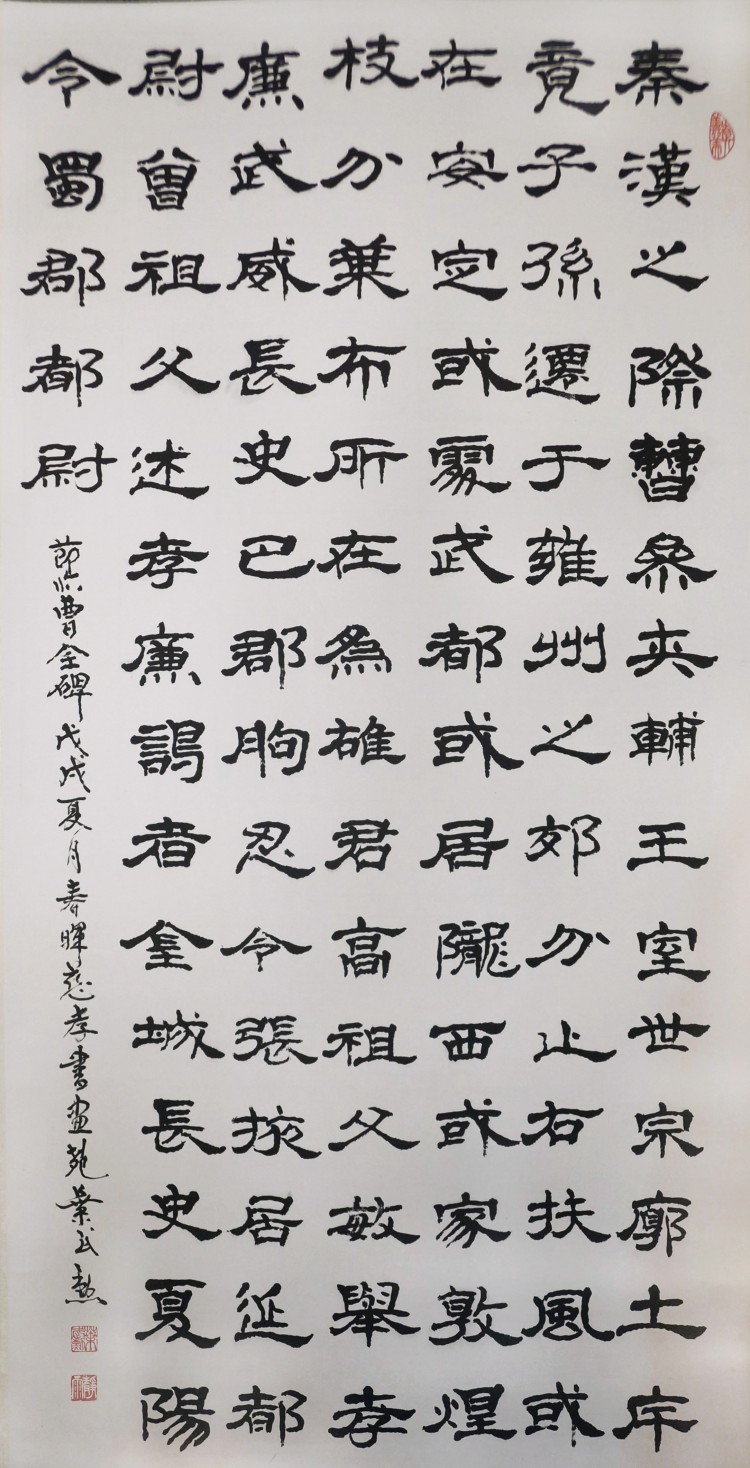 秦漢之際曹參夾輔王室世宗廓土斥
竟子孫遷于雍州之郊分止右扶風或
在安定或處武都或居隴西或家敦煌
枝分葉布所在為雄君高祖父敏舉孝
廉武威長史巴郡朐忍令張掖居延都
尉曾祖父述孝廉謁者金城長史夏陽
令蜀郡都尉
節临曹全碑戊戌夏月春暉慈孝書画苑葉勲